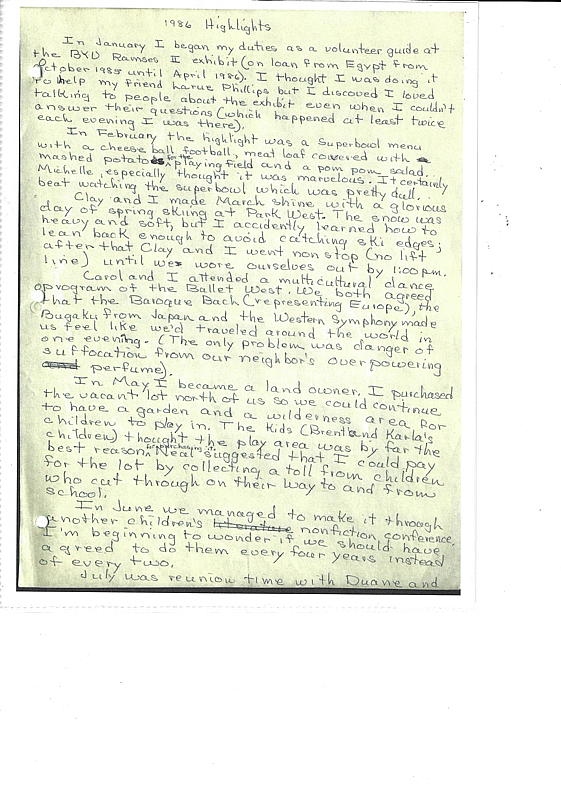 1986 Highlights
In January I began my duties as a volunteer guide at
the BYD Ramses II exhibit (on loan from Egypt from
October 1985 until April 1986). I thought I was doing it
to help my friend Larue Phillips but I discoved I loved
talking to people about the exhibit even when I couldn't
answer their questions (which happened at least twice
each evening I was there).
In February the highlight was a Superbowl menu
with a cheese ball football, meat loaf covered with
mashed potatoes for the playing field and a pom pom salad.
Michelle especially thought it was marvelous. It certainly
beat watching the superbowl which was pretty dull.
Clay and I made March shine with a glorious
day of spring skiing at Park West. The snow was
heavy and soft, but I accidently learned how to
lean back enough to avoid catching ski edges;
after that Clay and I went non stop (no lift
line) until we wore ourselves out by 1:00 p.m.
Carol and I attended a multicultural dance
program of the Ballet West. We both agreed
that the Baroque Bach (representing Europe), the
Bugaku from Japan and the Western Symphony made
us feel like we'd traveled around the world in
one evening. (The only problem was danger of
suffocation from our neighbor's overpowering
perfume).
In May I became a land owner. I purchased
the vacant lot north of us so we could continue
to have a garden and a wilderness area for
children to play in. The kids (Brent and Karla's
children) thought the play area was by far the
best reason for purchasing it. Neal suggested that I could pay
for the lot by collecting a toll from children
who cut through on their way to and from
school.
In June we managed to make it through
another children's literature nonfiction conference.
I'm beginning to wonder if we should have
agreed to do them every four years instead
of every two.
July was reunion time with Duane and